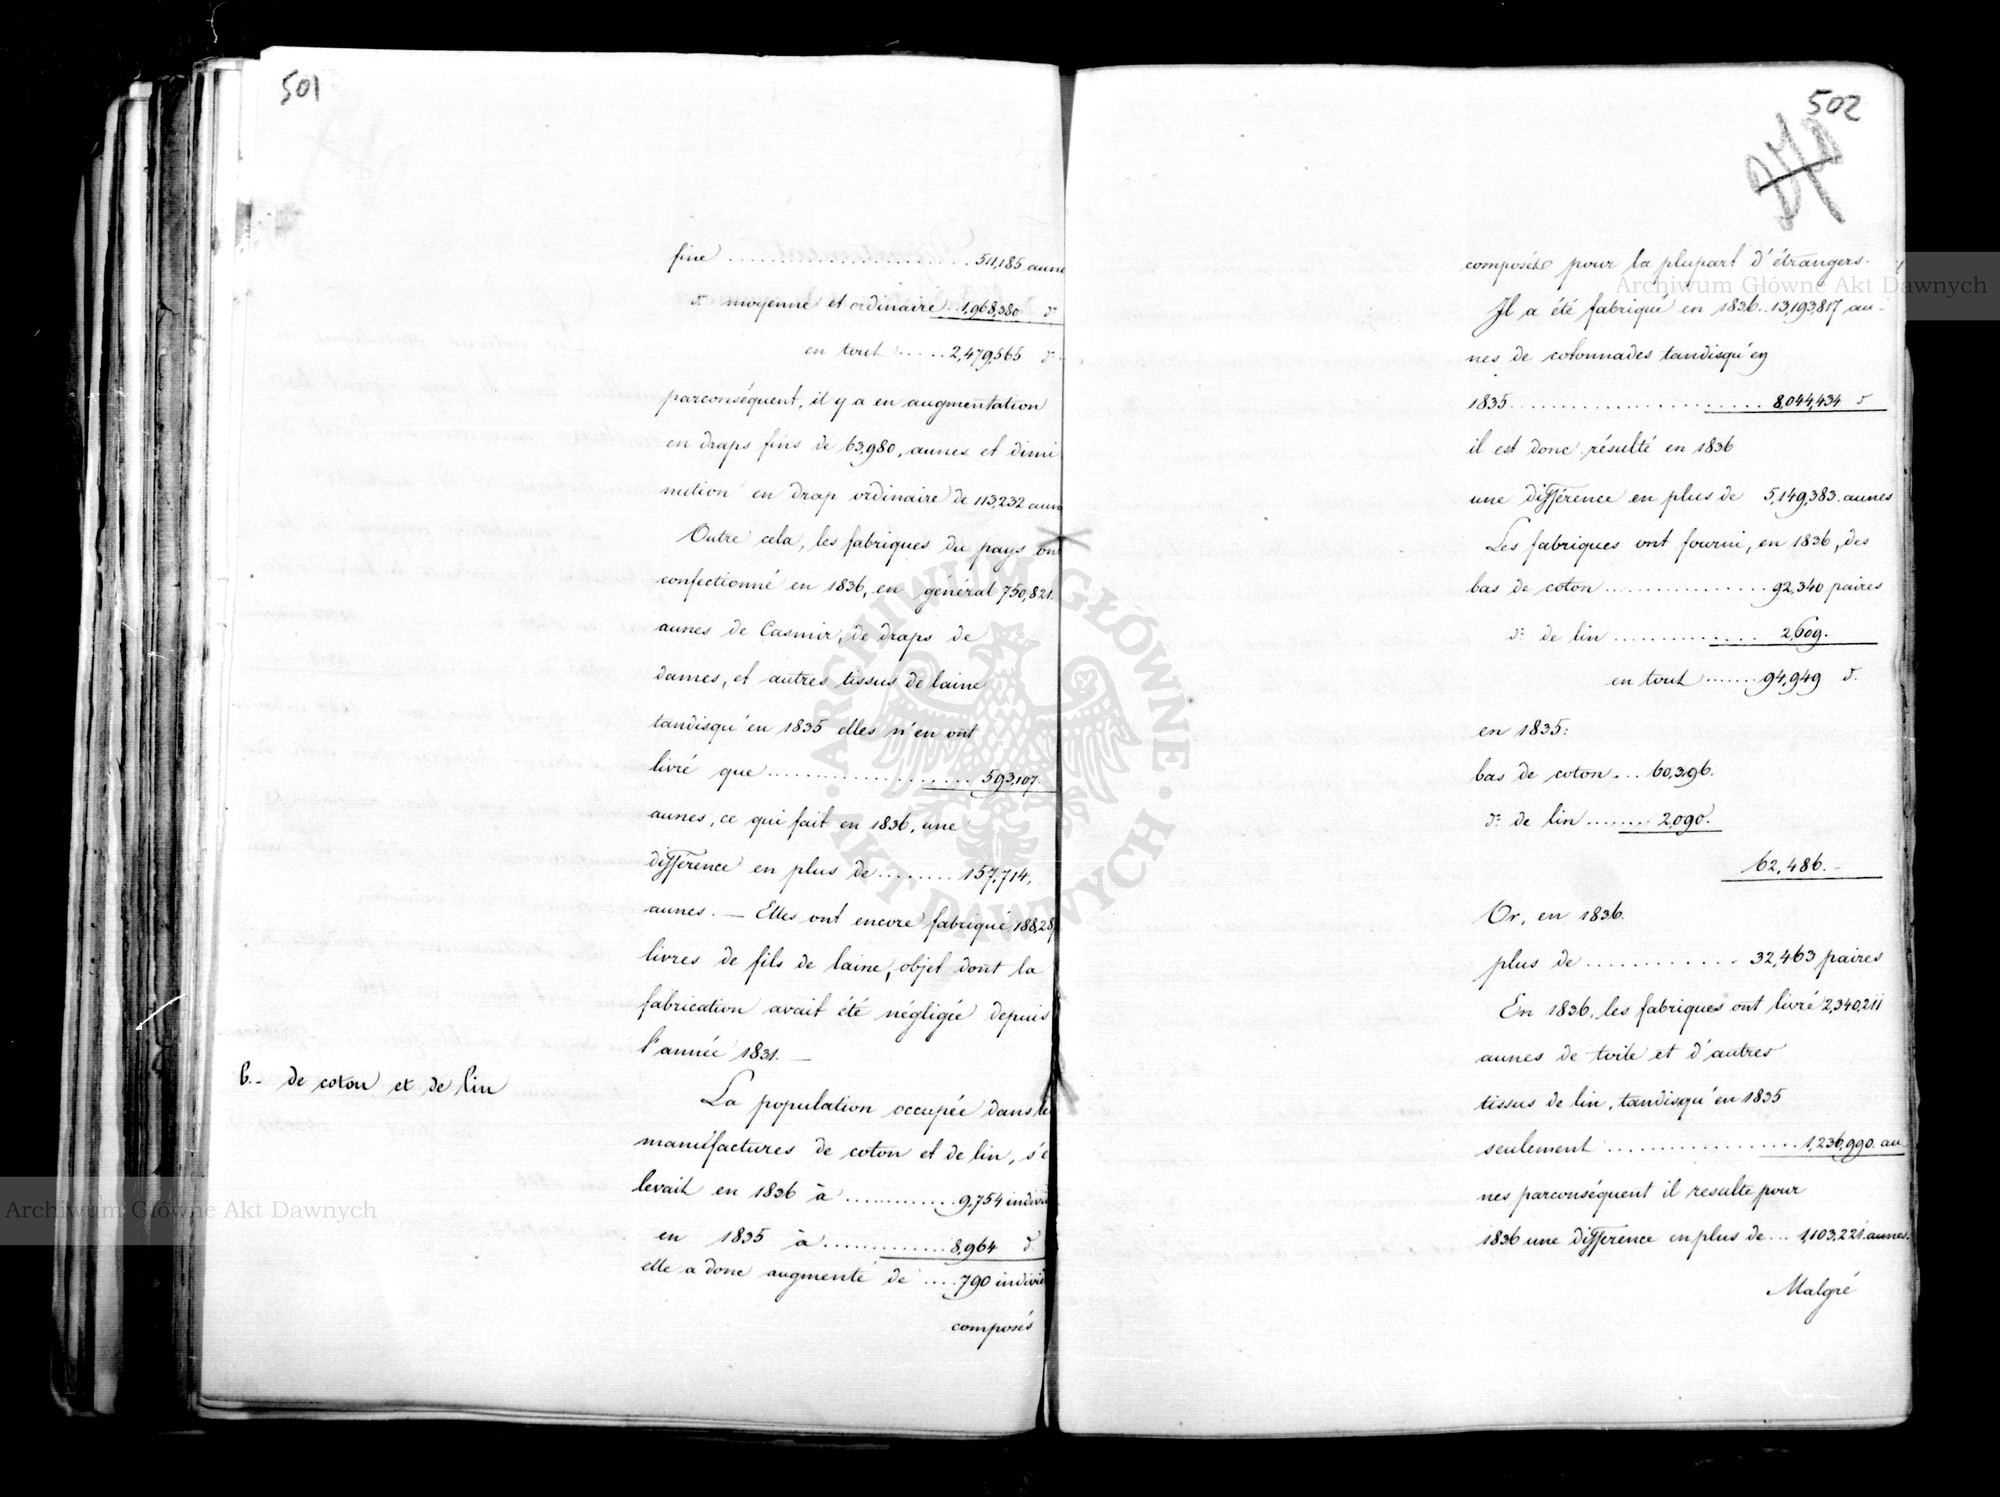 501
fine ........................ 511,185 aune
d° moyenne et ordinaire .. 1,968,380 d°
en tout ...... 2,479,565 d°
parconséquent, il y a en augmentation
en draps fins de 63,980, aunes et dimi
nution en drap ordinaire de 113,232 aun
Outre cela, les fabriques du pays ont
confectionné en 1836, en général 750,821.
aunes de Casmir, de draps de
dames, et autres tissus de laine
tandisqu'en 1835 elles n'en ont
livré que ........................ 593,107.
aunes, ce qui fait en 1836, une
différence en plus de ......... 157,714,
aunes. — Elles ont encore fabriqué 188,28
livres de fils de laine, objet dont la
fabrication avait été négligée depuis
l'année 1831. —
b. - de coton et de lin
La population occupée dans le
manufactures de coton et de lin, s'é
levait en 1836 à ............. 9,754 indivi
en 1835 à ............... 8,964 d°
elle a donc augmenté de .... 790 individ
composés
502
270
composée pour la plupart d'étrangers.
Il a été fabriqué en 1836.. 13,193,817 au-
nes de cotonnades tandisqu'en
1835 .......................... 8,044,434 d°
il est donc résulté en 1836
une différence en plus de 5,149,383. aunes
Les fabriques ont fourni, en 1836, des
bas de coton ................. 92,340 paires
d° de lin ............... 2,609.
en tout ....... 94,949 d°.
en 1835:
bas de coton ... 60,396.
d° de lin ....... 2,090.
62,486. -
Or, en 1836.
plus de ............. 32,463 paires
En 1836, les fabriques ont livré 2,340,211
aunes de toile et d'autres
tissus de lin, tandisqu'en 1835
seulement .................... 1,236,990. au-
nes parconséquent il resulte pour
1836 une différence en plus de ... 1,103,221. aunes.
Malgré
Archiwum Główne Akt Dawnych
Archiwum Główne Akt Dawnych
ARCHIWUM GŁÓWNE · AKT DAWNYCH ·